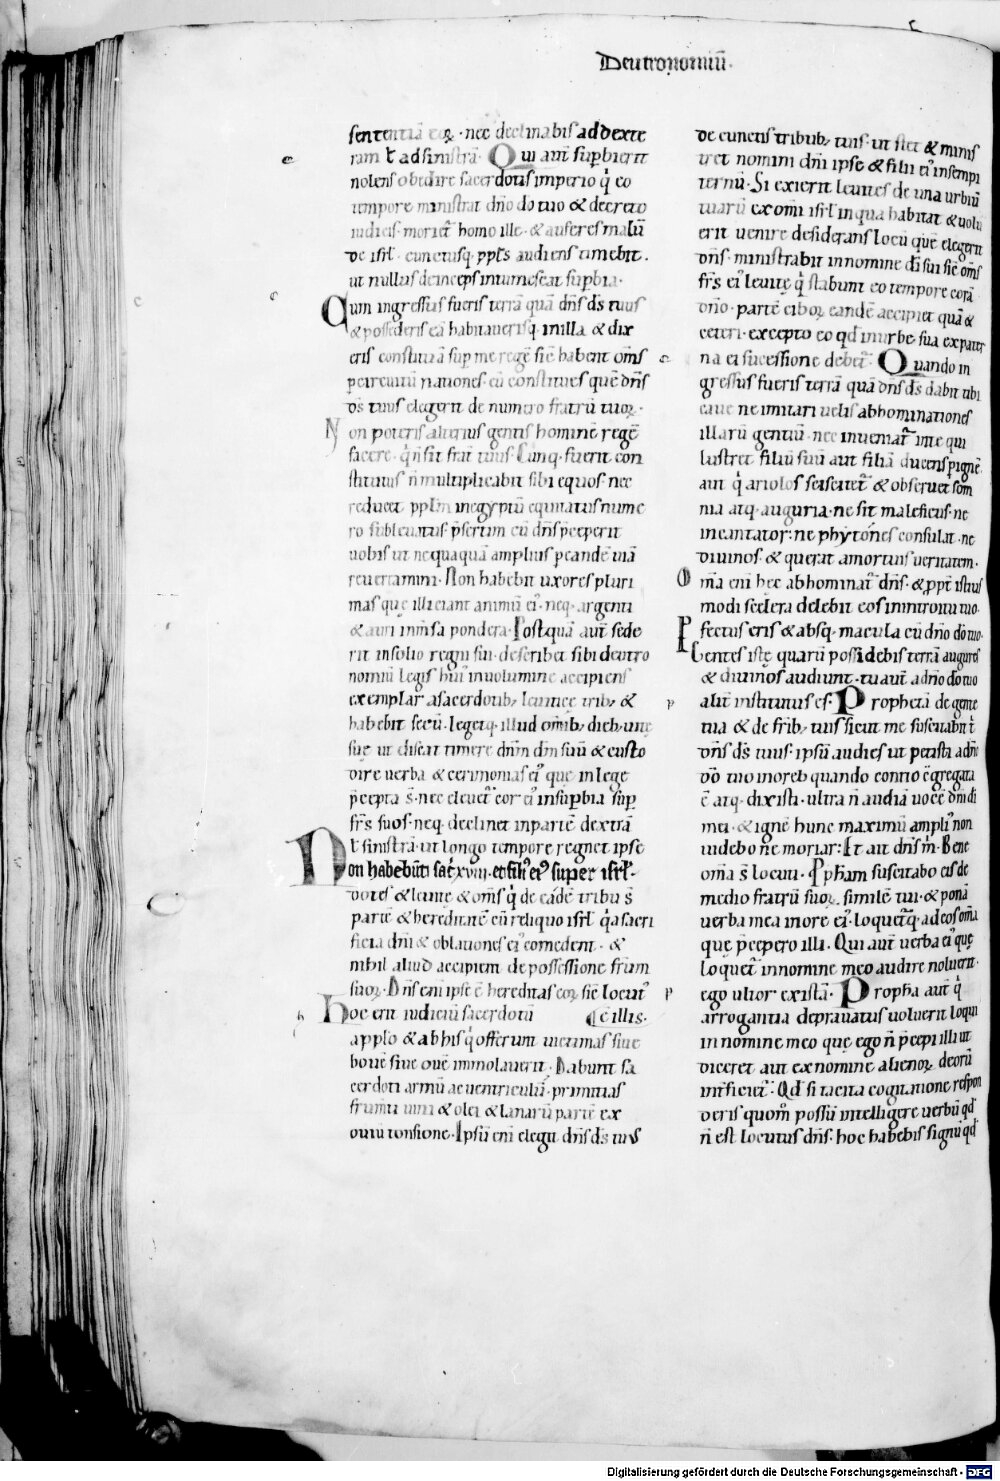 Deutronomiū.
sententiā eoꝝ. nec declinabis ad dexte
ram ł ad sinistrā. Qui aut̄ supbierit
nolens obedire sacerdotis imperio q̇ eo
tempore ministrat dn̄o dō tuo & decreto
iudicis. moriet᷑ homo ille. & auferes malū
de isrl̄. cunctusq. ppl̄s audiens timebit.
ut nullus deinceps intumescat supbia.
Cum ingressus fueris terrā quā dn̄s ds̄ tuus
& possederis eā habitauerisq. in illa & dix
eris constituā sup me regē sic̄ habent om̄s
per circuitū nationes. eū constitues quē dn̄s
ds̄ tuus elegerit de numero fratrū tuoꝝ.
Non poteris alterius gentis hominē regē
facere. q̇ n̄ sit frat̄ tuus. Cunq. fuerit con
stitutus n̄ multiplicabit sibi equos. nec
reducet ppl̄m in egyptū equitatus nume
ro subleuatus. p̄sertim cū dn̄s p̄ceperit
uobis ut nequaquā amplius p eandē uiā
reuertamini. Non habebit uxores pluri
mas quę illiciant animū ei᷒. neq. argenti
& auri inm̄sa pondera. Postquā aut̄ sede
rit in solio regni sui. describet sibi deutro
nomiū legis hui᷒ in uolumine accipiens
exemplar a sacerdotib; leuiticę trib; &
habebit secū. legetq. illud om̄ib; dieb; uitę
suę ut discat timere dn̄m dm̄ suū & custo
dire uerba & cerimonias ei᷒ que in lege
p̄cepta s̄. nec eleuet᷑ cor ei᷒ in supbia sup
fr̄s suos. neq. declinet in partē dextrā
ł sinistrā. ut longo tempore regnet ipse
Non habebūt sac̄ xviii. et filii ei᷒ super isrl̄.
dotes & leuitę & om̄s q̇ de eādē tribu s̄
partē & hereditatē cū reliquo isrl̄. q̇a sacri
ficia dn̄i & oblationes ei᷒ comedent. &
nihil aliud accipient de possessione frūm
suoꝝ. Dn̄s eni ipse ē hereditas eoꝝ sic̄ locut᷒
Hoc erit iudiciū sacerdotū ē illis.
a pplo & ab his q̇ offerunt uictimas siue
bouē siue ouē immolauerit. Dabunt sa
cerdoti armū ac uentriculū. primitias
frumti uini & olei & lanarū partē ex
ouiū tonsione. Ipsū eni elegit dn̄s ds̄ tuus
de cunctis tribub; tuis. ut stet & minis
tret nomini dn̄i ipse & filii ei᷒ in sempi
ternū. Si exierit leuites de una urbiū
tuarū ex omi isrl̄ in qua habitat & uolu
erit uenire desiderans locū quē elegerit
dn̄s. ministrabit in nomine di sui sic̄ om̄s
fr̄s ei᷒ leuitę q̇ stabunt eo tempore corā
dn̄o. partē ciboꝝ eandē accipiet quā &
ceteri. excepto eo qd̄ in urbe sua ex pater
na ei sucessione debet᷑. Quando in
gressus fueris terrā quā dn̄s ds̄ dabit tibi
caue ne imitari uelis abhominationes
illarū gentiū. nec inueniat᷑ in te qui
lustret filiū suū aut filiā ducens p ignē.
aut q̇ ariolos sciscitet᷑ & obseruet som
nia atq. auguria. ne sit maleficus. ne
incantator. ne phytones consulat. ne
diuinos. & querat a mortuis ueritatem.
Om̄a eni hec abhominat᷑ dn̄s. & ppt̄ istius
modi scelera delebit eos in introitu tuo.
Perfectus eris & absq. macula cū dn̄o dō tuo.
Gentes istę quarū possidebis terrā augures
& diuinos audiunt. tu aut̄ a dn̄o dō tuo
alit̄ institutus es. Prophetā de gente
tua & de frib; tuis sicut me suscitabit t̄
dn̄s ds̄ tuus. ipsū audies ut petista a dn̄o
dō tuo in oreb quando contio c̄gregata
ē atq. dixisti. ultra n̄ audiā uocē dn̄i di
mei. & ignē hunc maximū ampli᷒ non
uidebo ne moriar. Et ait dn̄s m̄. Bene
om̄a s̄ locuti. Pp̄ham suscitabo eis de
medio fratrū suoꝝ. similē tui. & ponā
uerba mea in ore ei᷒. loquet᷑q. ad eos om̄a
quę p̄cepero illi. Qui aut̄ uerba ei᷒ quę
loquet᷑ in nomine meo audire noluerit.
ego ultor existā. Propha aut̄ q̇
arrogantia deprauatus uoluerit loqui
in nomine meo quę ego n̄ p̄cepi illi ut
diceret aut ex nomine alienoꝝ deorū
int̄ficiet᷑. Qd̄ si tacita cogitatione respon
deris quom̄ possū intelligere uerbū qd̄
n̄ est locutus dn̄s. hoc habebis signū qd̄
Digitalisierung gefördert durch die Deutsche Forschungsgemeinschaft - DFG